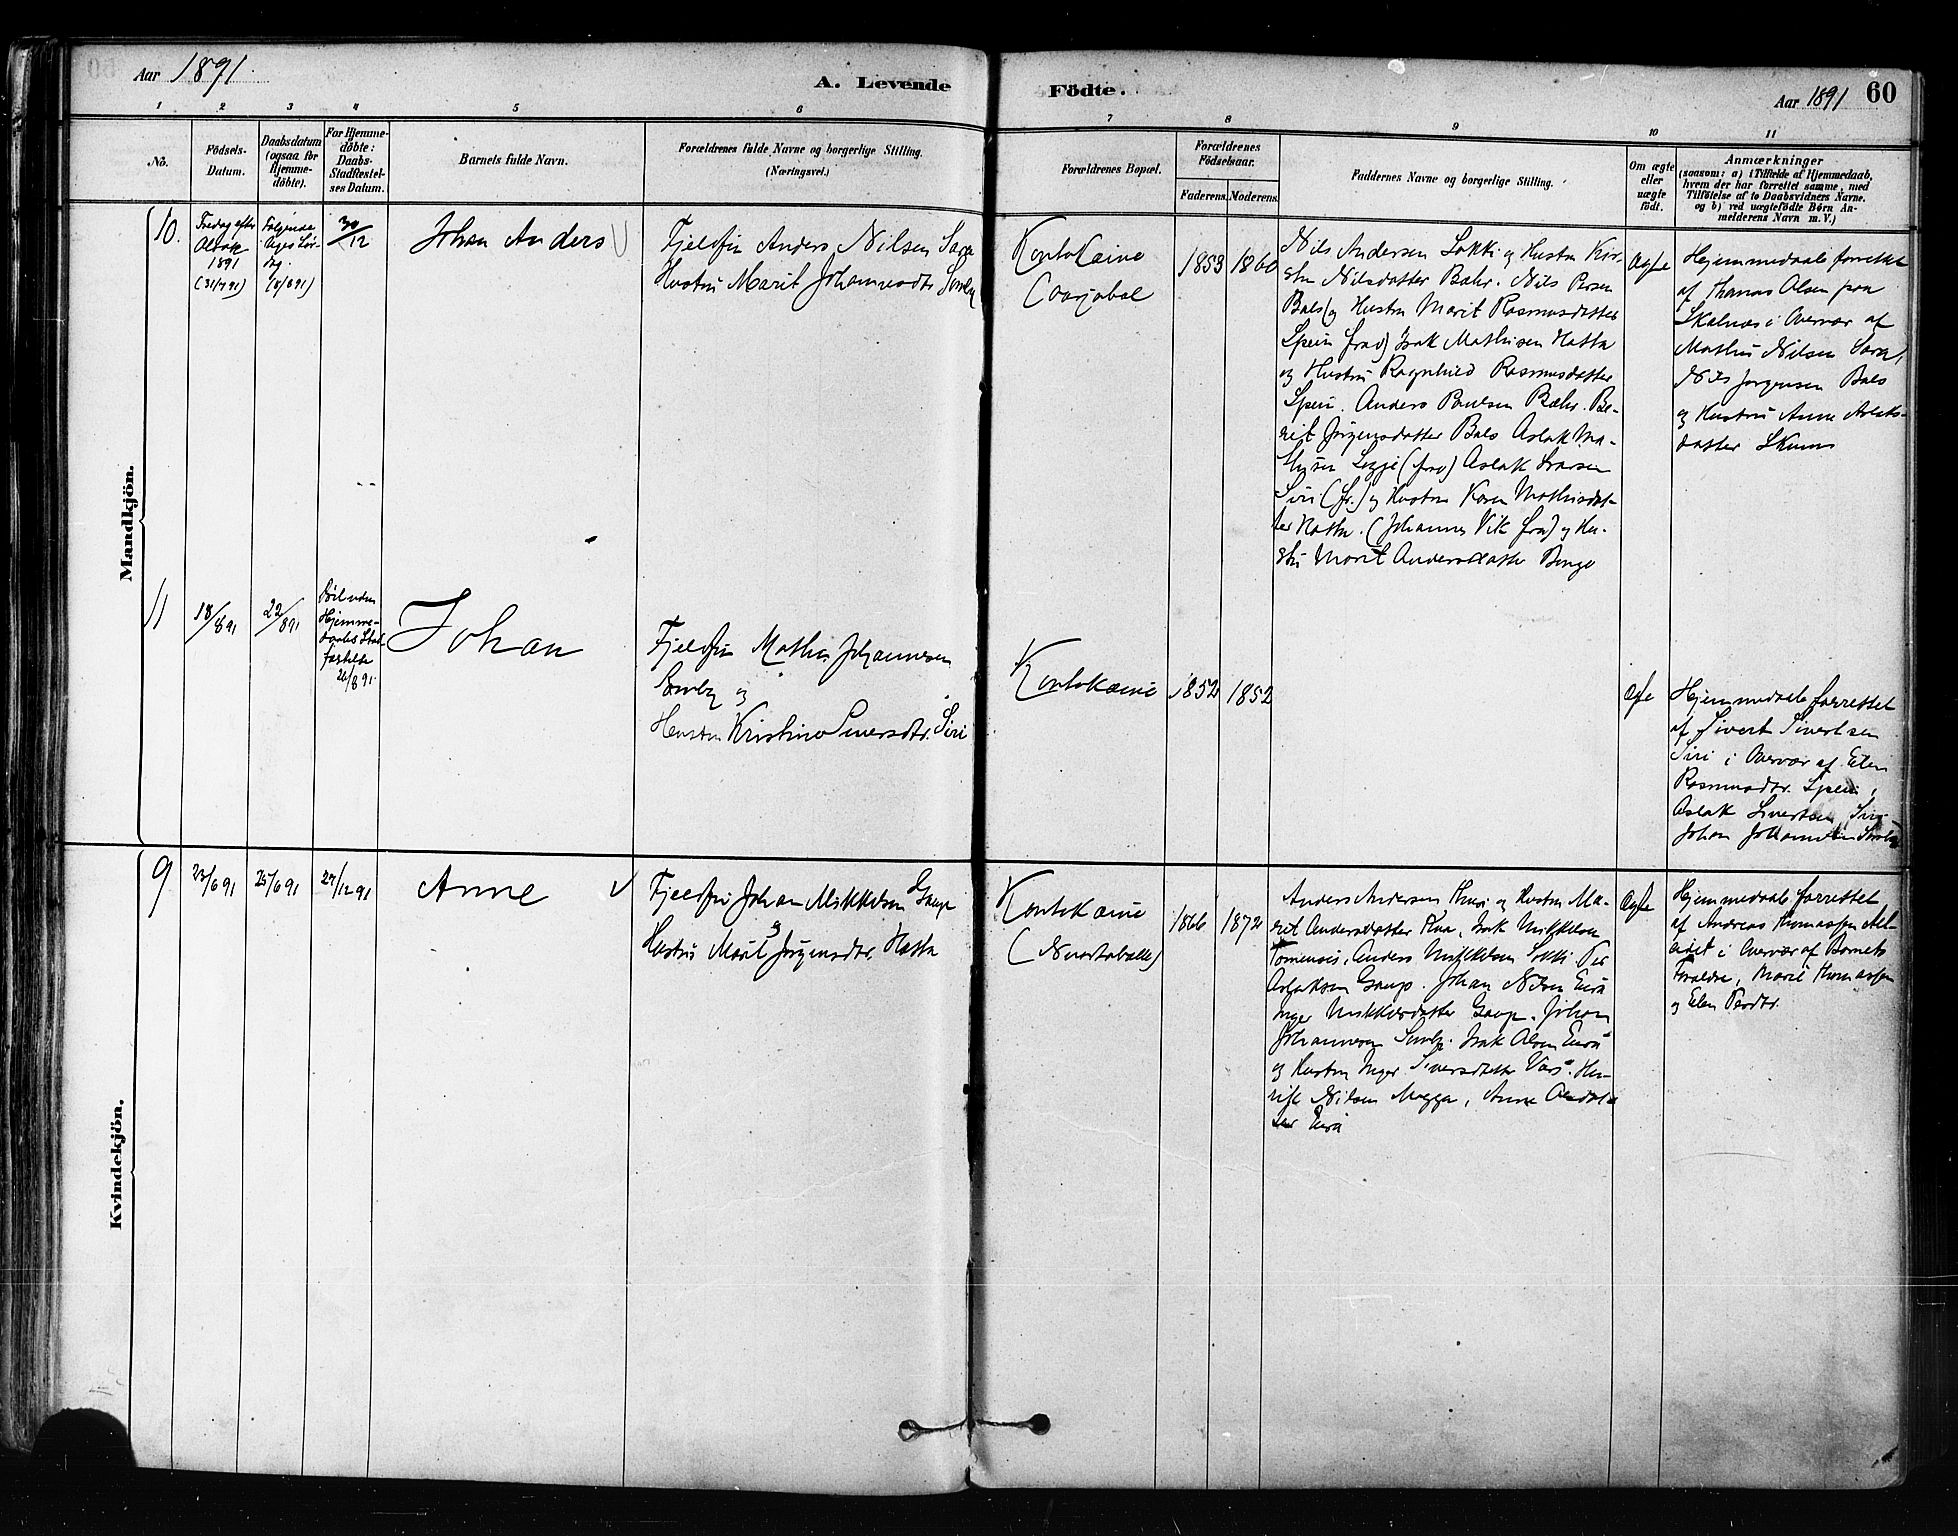 Aar 1891.
A. Levende Födte.
Aar 1891 60
1 2 3 4 5 6 7 8 9 10 11
No.
Födsels-
Datum.
Daabsdatum
(ogsaa for
Hjemme-
döbte).
For Hjemme-
döbte:
Daabs-
Stadfæstel-
ses Datum.
Barnets fulde Navn.
Forældrenes fulde Navne og borgerlige Stilling.
(Næringsvei.)
Forældrenes Bopæl.
Forældrenes
Födselsaar.
Faderens. Moderens.
Faddernes Navne og borgerlige Stilling.
Om ægte
eller
uægte
født.
Anmærkninger
(saasom: a) i Tilfælde af Hjemmedaab,
hvem der har forrettet samme, med
Tilföielse af to Daabsvidners Navne,
og b) ved uægtefödte Börn An-
melderens Navn m. V.)
Mandkjön.
10.
Fredag efter
Olsok
1891
(31/7 91)
Følgende
Dags Lør-
dag.
(1/8 91)
30/12
Johan Anders
Fjeldfin Anders Nilsen Sara
Hustru Marit Johannesdtr Somby
Kontokaino
1853 1860
Nils Andersen Lokki og Hustru Kir-
sten Nilsdatter Bæhr. Nils Persen
Bals og Hustru Marit Rasmusdatter
Spein (frav) Isak Mathisen Hætta
og Hustru Ragnhild Rasmusdatter
Spein. Anders Poulsen Bæhr. Be-
rit Jörgensdatter Bals Aslak Ma-
thisen (frav) Aslak Ivarsen
Siri (fr.) og Hustru Karen Mathisdat-
ter Hætta. (Johannes Vik frav) og Hu-
stru Marit Andersdatter Bongo
Ægte
Hjemmedaab forrettet
af Thomas Olsen fra
Skalnæs i Overvær af
Mathis Nilsen Sara,
Nils Jorgensen Bals
og Hustru Anne Aslaks-
datter Skum
11
18/8 91
22/8 91
Hjemme-
daabs Stad-
fæstelse
Johan
Fjeldfin Mathis Johannesen
Somby og
Hustru Kristine Siversdtr. Siri
Kontokæino
1852 1852
Ægte
Hjemmedaab forrettet
af Sivert Sivertsen
Siri i Overvær af Elen
Rasmusdtr. Spein,
Aslak Sivertsen Siri
Johan Johannesen Somby
Kvindekjön.
9
23/6 91
25/6 91
27/12 91
Anne
Fjeldfin Johan Mikkelsen Gaup
og
Hustru Marit Jörgensdtr. Hætta
Kontokæino
1866 1872
Anders Andersen Thuri og Hustru Ma-
rit Andersdatter Kva, Isak Mikkelsen
Tornensis, Anders Mikkelsen Lokki Per
Aslaksen Gaup. Johan Nilsen Eira
Inger Mikkelsdatter Gaup. Johan
Johannesen Somby. Isak Olsen Eira
og Hustru Inger Siversdatter Vars. Hen-
rik Nilsen Magga, Anne
ter Eira
Ægte
Hjemmedaab forrettet
af Andreas Thomassen
i Overvær af Barnets
Forældre, Marit Thomassen
og Elen Persdtr.